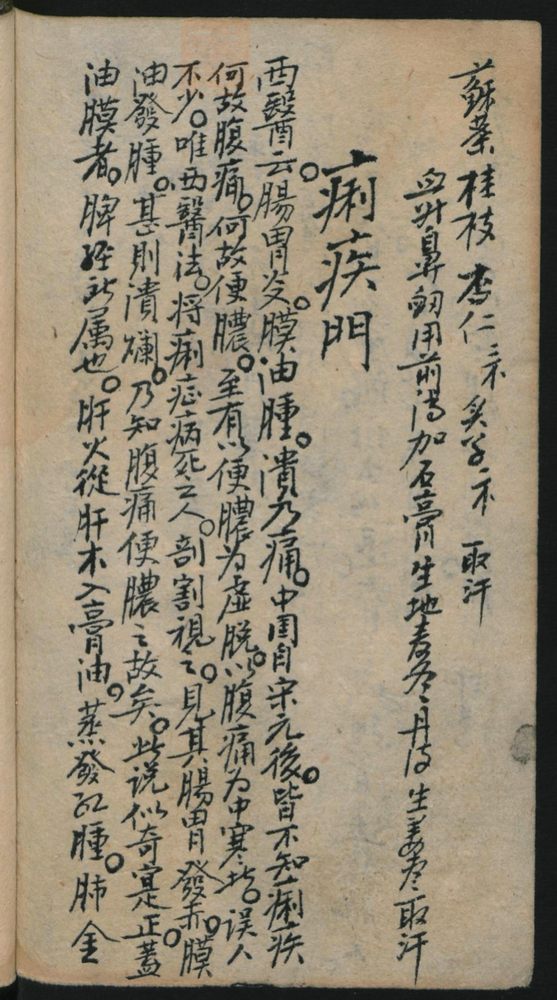 蘇葉 桂枝 杏仁 三不 炙草 不 取汗
血外鼻衄用前湯加石膏生地麦冬丹皮生姜枣取汗
痢疾門
西醫云。腸胃炎。膜油腫。潰乃痛。中国自宋元後。皆不知痢疾
何故腹痛。何故便膿。至有以便膿为虛脱。以腹痛为中寒者。误人
不少。唯西醫法。将痢症病死之人。剖割視之。見其腸胃發赤。膜
油發腫。甚則潰爛。乃知腹痛便膿之故矣。此说似奇寔正。蓋
油膜者。脾经所属也。肝火從肝木入膏油。蒸發红腫。肺金